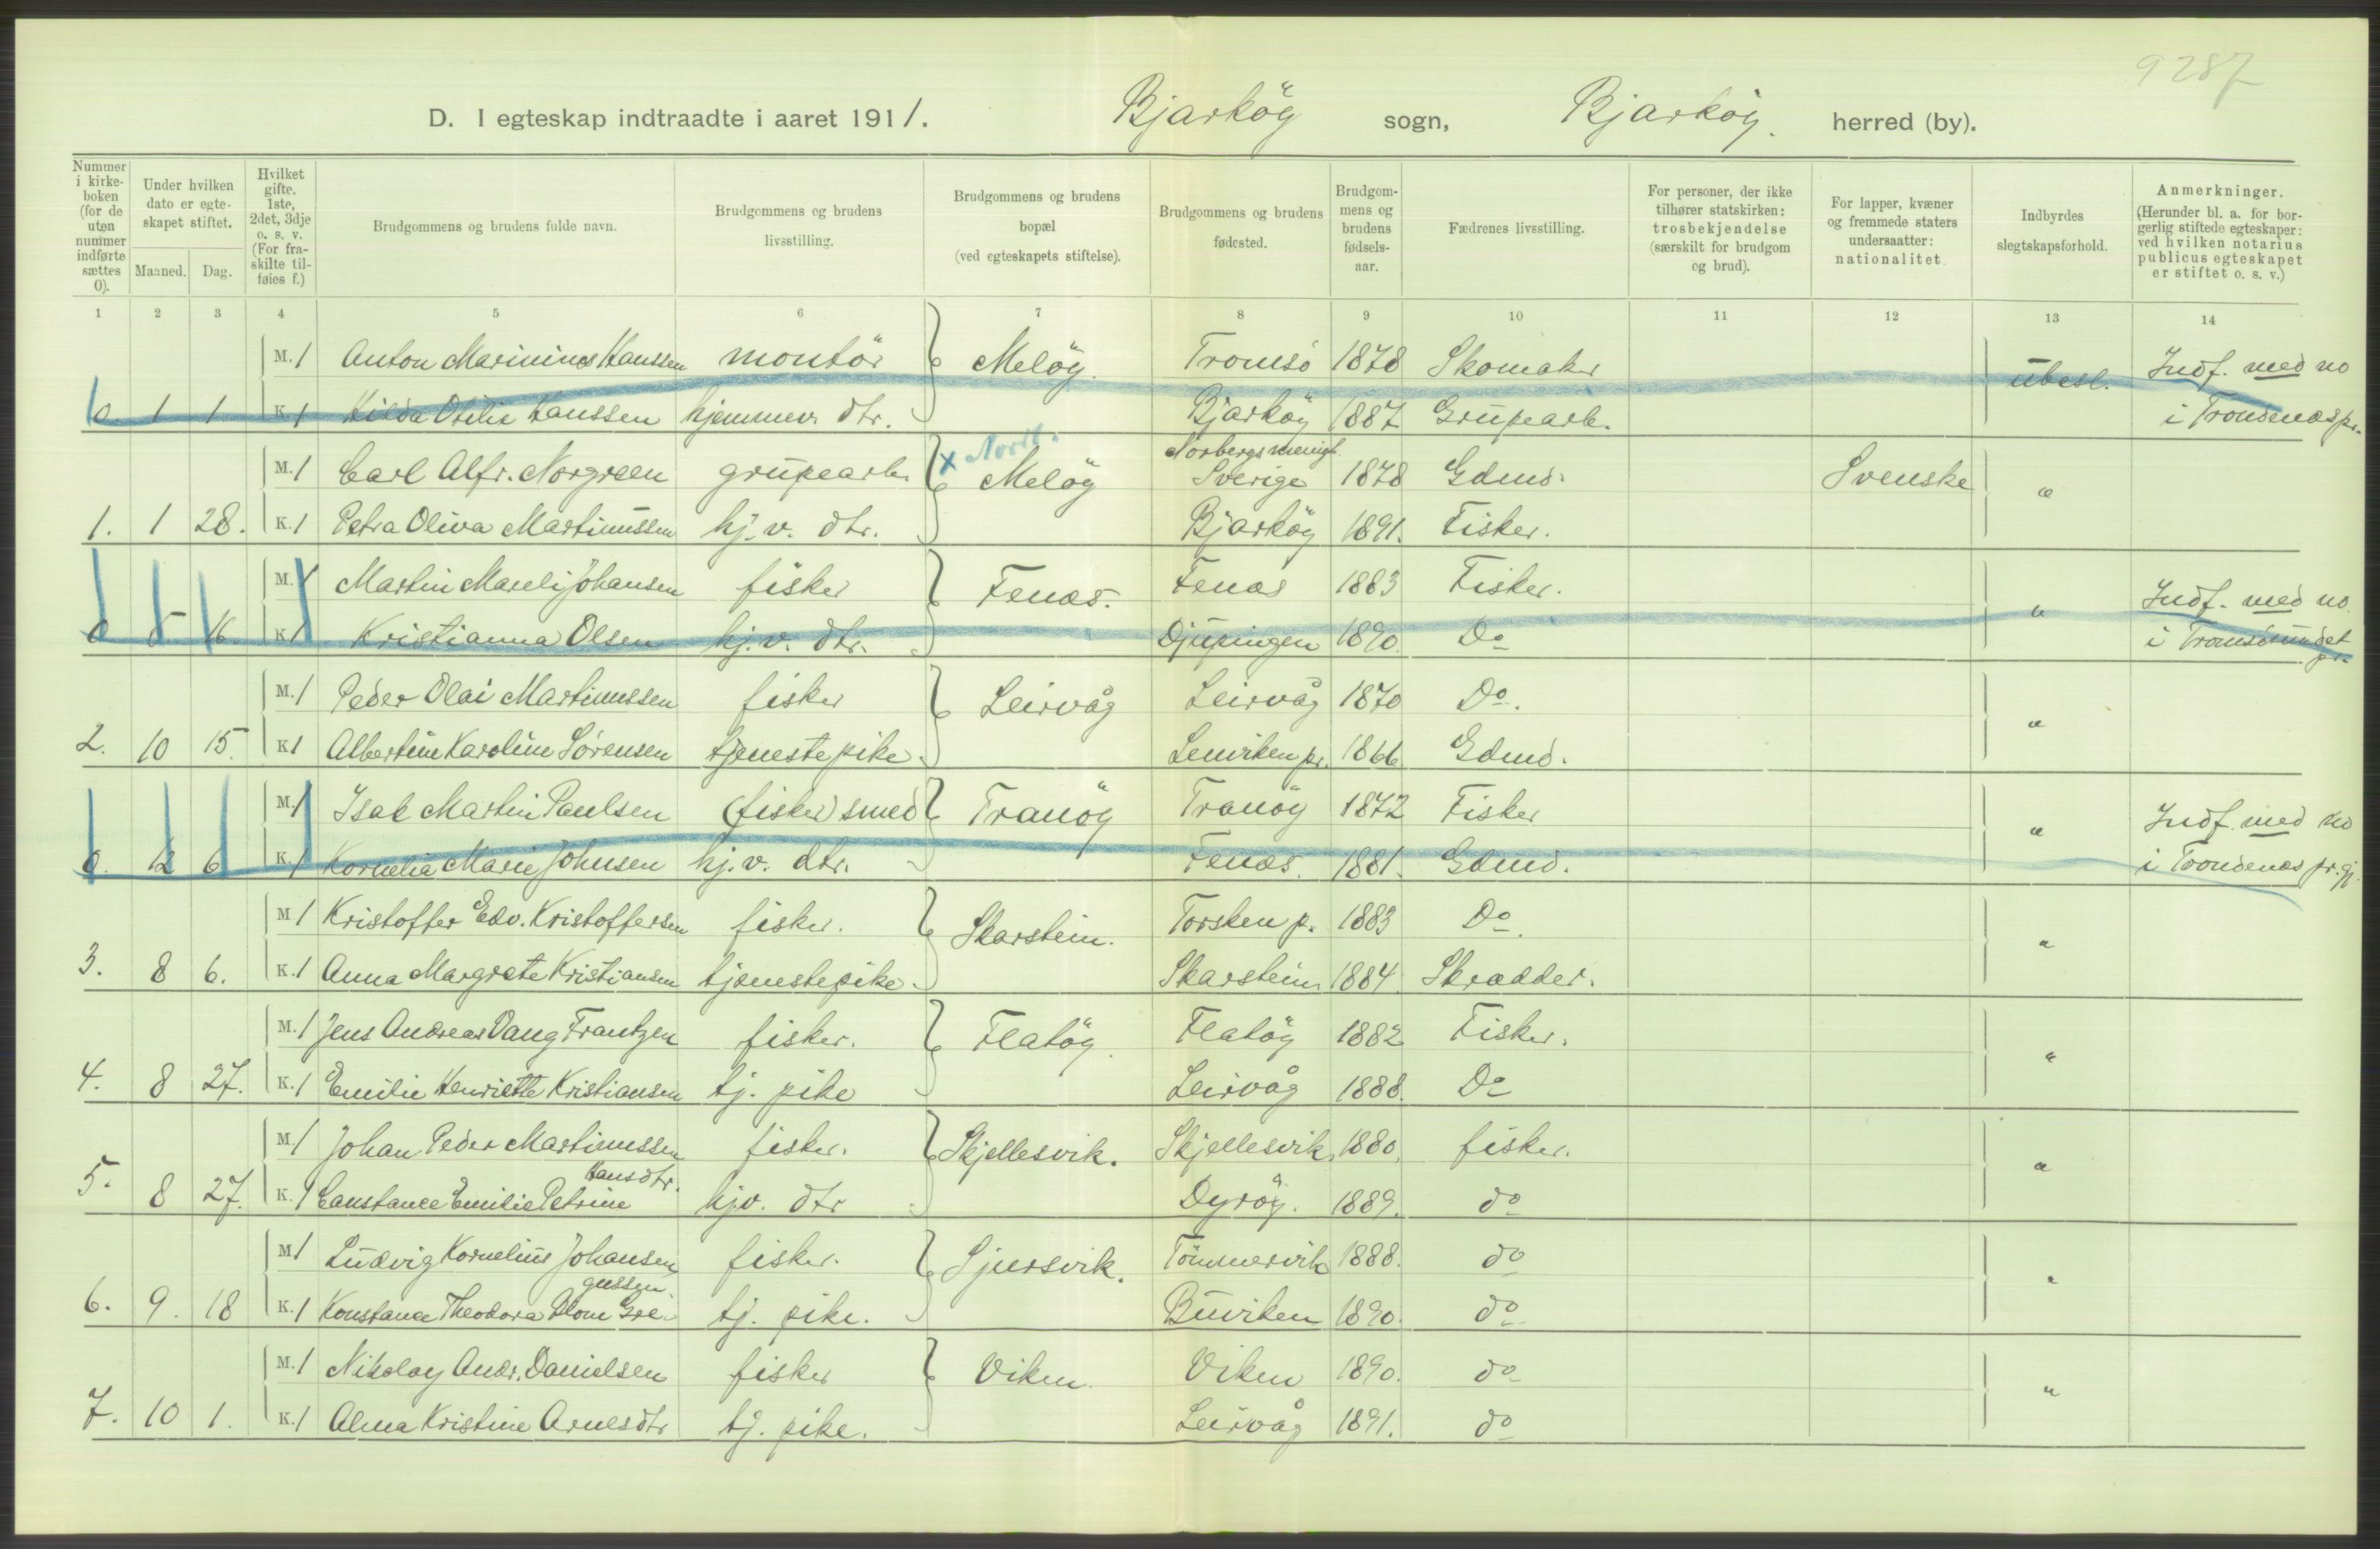 9287
D. I egteskap indtraadte i aaret 1911. Bjarköy sogn, Bjarköy. herred (by).
Nummer i kirke-boken (for de uten nummer indførte sættes 0).
Under hvilken dato er egte-skapet stiftet.
Maaned. Dag.
Hvilket gifte. 1ste, 2det, 3dje o. s. v. (For fra-skilte til-føies f.)
Brudgommens og brudens fulde navn.
Brudgommens og brudens livsstilling.
Brudgommens og brudens bopæl (ved egteskapets stiftelse).
Brudgommens og brudens fødested.
Brudgom-mens og brudens fødsels-aar.
Fædrenes livsstilling.
For personer, der ikke tilhører statskirken: trosbekjendelse (særskilt for brudgom og brud).
For lapper, kvæner og fremmede staters undersaatter: nationalitet.
Indbyrdes slegtskapsforhold.
Anmerkninger. (Herunder bl. a. for bor-gerlig stiftede egteskaper: ved hvilken notarius publicus egteskapet er stiftet o. s. v.)
1 2 3 4 5 6 7 8 9 10 11 12 13 14
M. 1 Anton Marinius Hanssen montör Melöy. Tromsö 1878 Skomaker ubesl. Indf. med no
0. 1 1 K. 1 Hilda Otilie Hanssen hjemmev. dtr. Bjarköy 1887 Grupearb. i Trondenæs pr.
M. 1 Carl Alfr. Norgreen grupearb. x Norsk. Melöy Norbergs menigh. Sverige 1878 Gdmd. Svenske "
1. 1 28. K. 1 Petra Oliva Martinussen hj. v. dtr. Bjarköy 1891. Fisker.
M. 1 Martin Mareli Johansen fisker Fenæs. Fenæs 1883 Fisker. " Indf. med no.
0 5 16. K. 1 Kristianna Olsen hj. v. dtr. Djupingen 1890. Do i Tromsösundet pr.
M. 1 Peder Olai Martinussen fisker Leirvåg Leirvåg 1870 Do. "
2. 10 15. K. 1 Albertine Karoline Sörensen tjenestepike Lenviken pr. 1866 Gdmd.
M. 1 Isak Martin Paulsen (fisker) smed Tranöy Tranöy 1872 Fisker " Indf. med no
0. 12 6 K. 1 Kornelia Marie Johnsen hj. v. dtr. Fenæs. 1881. Gdmd. i Trondenæs pr.gj.
M. 1 Kristoffer Edv. Kristoffersen fisker. Skarstein. Torsken p. 1883 Do. "
3. 8 6. K. 1 Anna Margrete Kristiansen tjenestepike Skarstein 1884 Skrædder.
M. 1 Jens Andreas Vang Frantzen fisker. Flatöy. Flatöy 1882 Fisker. "
4. 8 27. K. 1 Emilie Henriette Kristiansen tj. pike Leirvåg 1888. Do
M. 1 Johan Peder Martinussen fisker. Skjellesvik. Skjellesvik 1880. fisker. "
5. 8 27. K. 1 Constance Emilie Petrine Hansdtr. hjv. dtr Dyröy. 1889. do
M. 1 Ludvig Kornelius Johansen fisker. Sjursvik. Tömmervik 1888. do "
6. 9. 18 K. 1 Konstance Theodora Blom Gre-gussen tj. pike. Buviken 1890. do
M. 1 Nikolay Andr. Danielsen fisker Viken Viken 1890. do "
7. 10 1. K. 1 Alma Kristine Arnesdtr tj. pike. Leirvåg 1891. do